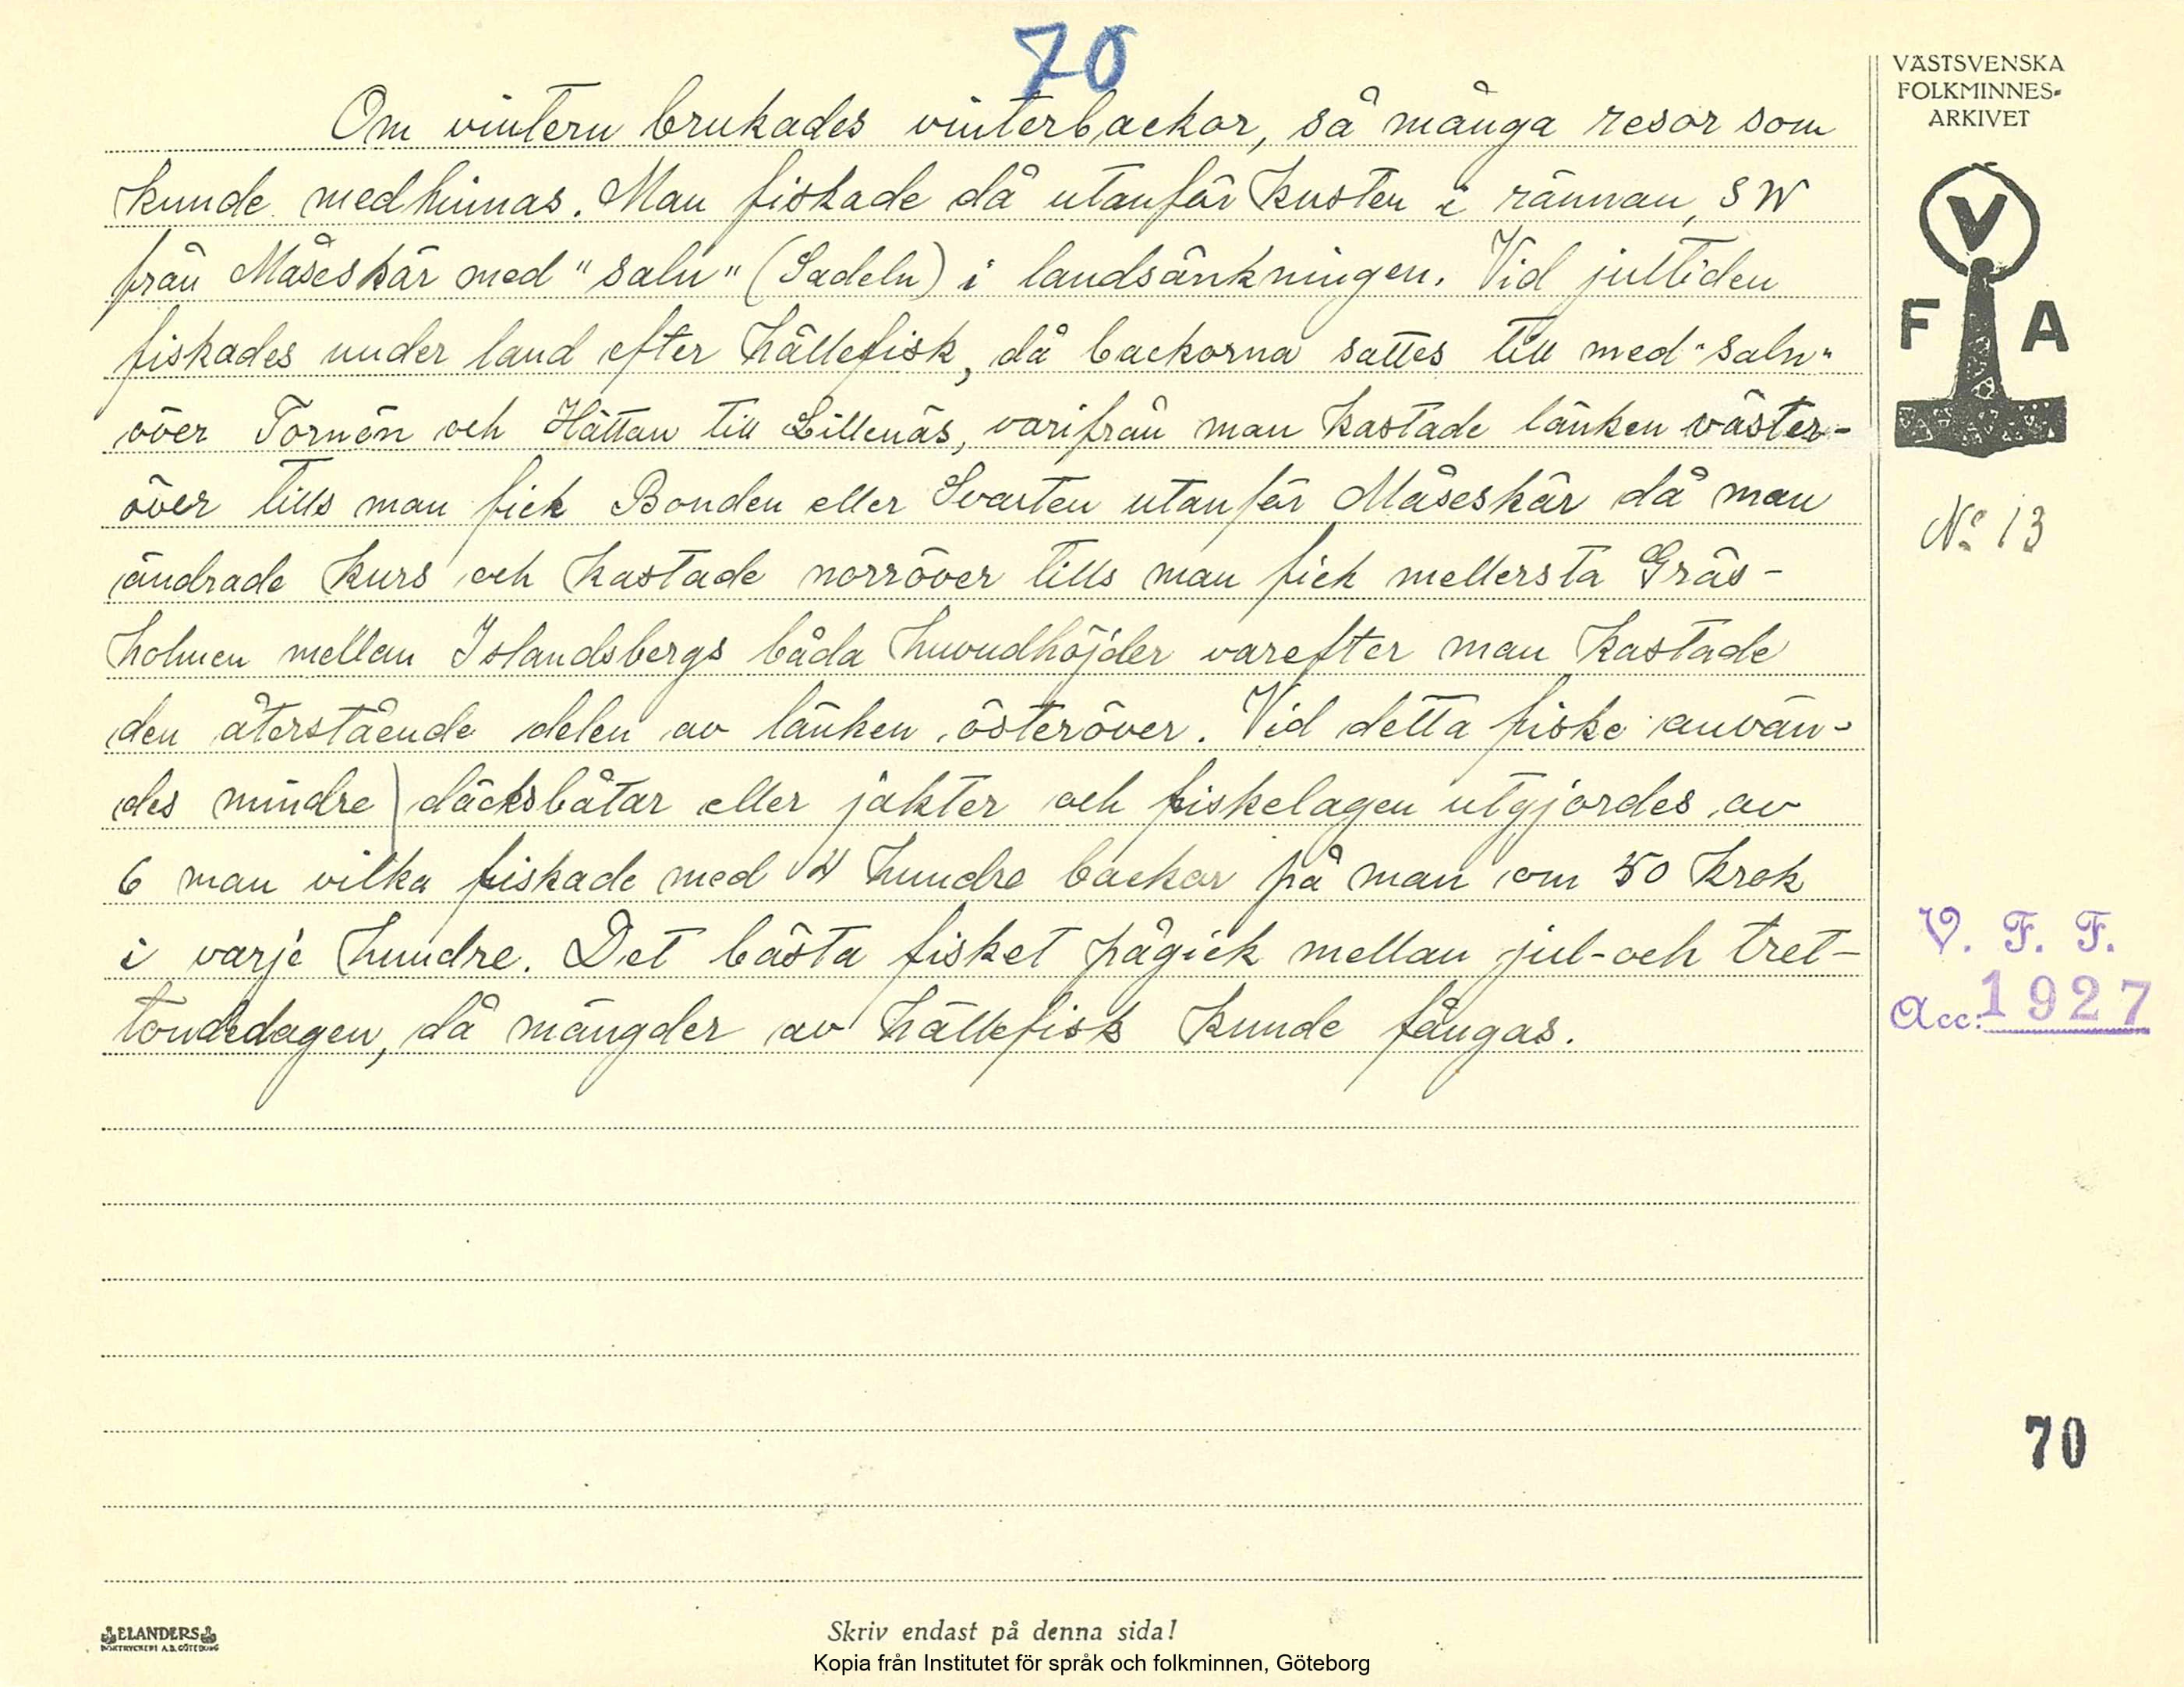 70
Om vintern brukades vinterbackor, så många resor som
kunde medhinnas. Man fiskade då utanför kusten i rännan, SW
från Måseskär med "saln" (Sadeln) i landsänkningen. Vid jultiden
fiskades under land efter hällefisk, då backorna sattes till med "saln"
över Tornön och Hättan till Lillenäs, varifrån man kastade länken väster-
över tills man fick Bonden eller Svarten utanför Måseskär då man
ändrade kurs och kastade norröver tills man fick mellersta Gräs-
holmen mellan Islandsbergs båda huvudhöjder varefter man kastade
den återstående delen av länken österöver. Vid detta fiske använ-
des mindre däcksbåtar eller jakter och fiskelagen utgjordes av
6 man vilka fiskade med hundre backor på man om 50 krok
i varje hundre. Det bästa fisket pågick mellan jul- och tret-
tondedagen, då mängder av hällefisk kunde fångas.
VÄSTSVENSKA
FOLKMINNES-
ARKIVET
V
F A
No 13
V. F. F.
Acc: 1927
70
ELANDERS
BOKTRYCKERI A.B. GÖTEBORG
Skriv endast på denna sida!
Kopia från Institutet för språk och folkminnen, Göteborg